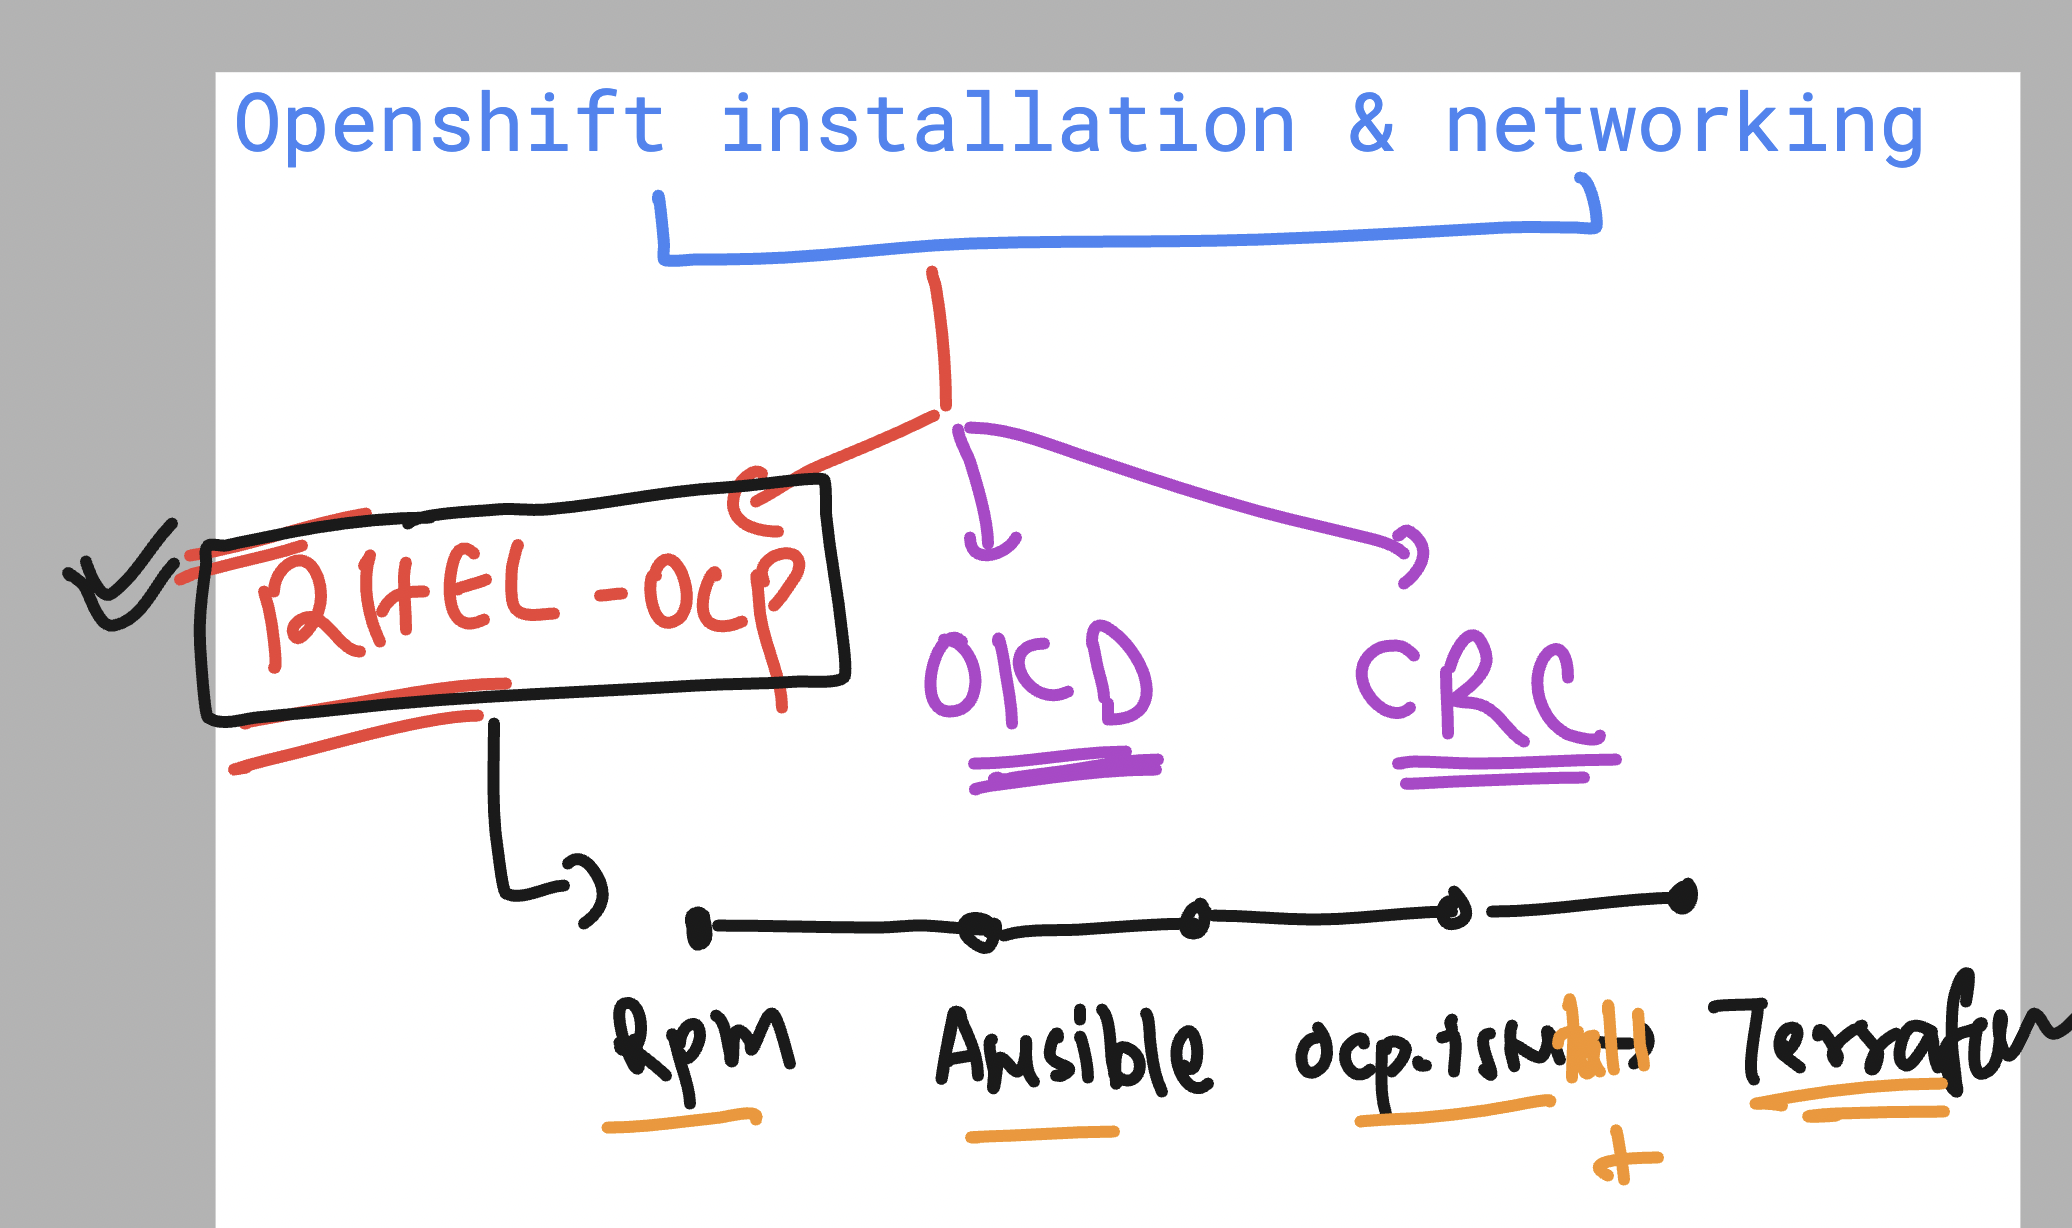 Openshift installation & networking
RHEL - OCP
OKD
CRC
Rpm Ansible Terraform
+